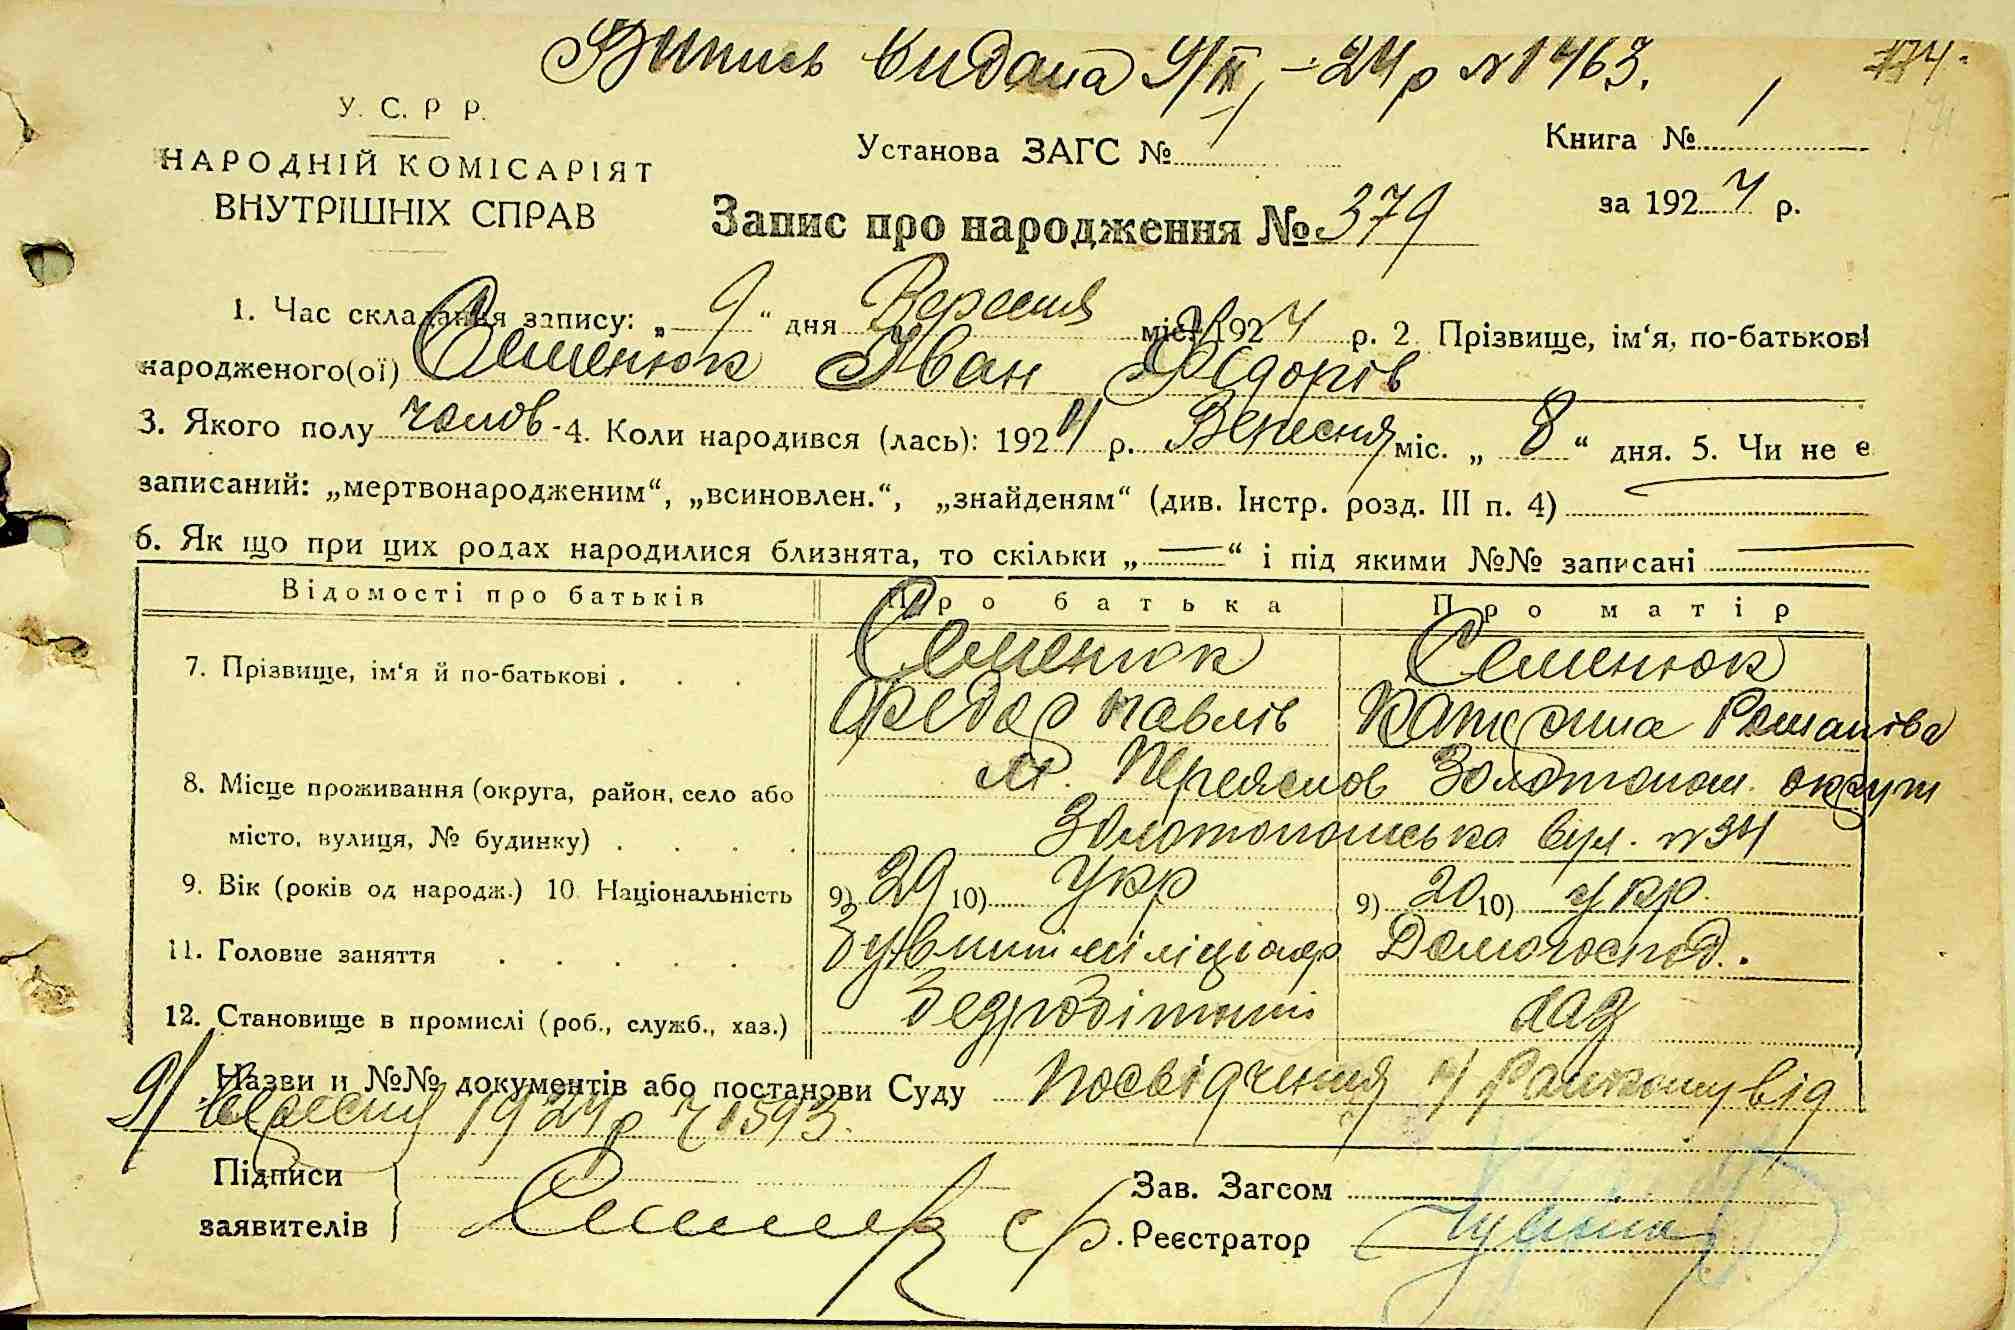 Випись видана 9/IX – 24 р № 1463.
У. С. Р Р.
НАРОДНІЙ КОМІСАРІЯТ
ВНУТРІШНІХ СПРАВ
Установа ЗАГС № 1
Книга № 1
за 1924 р.
Запис про народження № 379
1. Час складання запису: „ 9 “ дня Вересня міс. 1924 р. 2. Прізвище, ім‘я, по-батькові
народженого(ої) Семенюк Іван Федорів
3. Якого полу чолов. 4. Коли народився (лась): 1924 р. Вересня міс. „ 8 “ дня. 5. Чи не є
записаний: „мертвонародженим“, „всиновлен.“, „знайденям“ (див. Інстр. розд. III п. 4)
6. Як що при цих родах народилися близнята, то скільки „ — “ і під якими №№ записані —
Відомості про батьків Про батька Про матір
7. Прізвище, ім‘я й по-батькові . . . Семенюк Семенюк
Федор Павлів Катерина Романова
8. Місце проживання (округа, район, село або м. Переяслов Золотонош. округи
місто, вулиця, № будинку) . . . . Золотоношська вул. № 34
9. Вік (років од народж.) 10. Національність 9) 29 10) Укр 9) 20 10) Укр.
11. Головне заняття . . . . . . Бувший міліціонер Домогоспод.
12. Становище в промислі (роб., служб., хаз.) безробітний
Назви и №№ документів або постанови Суду Посвідчення від
9/ вересня 1924 р № 1593.
Підписи
заявителів } Семенюк Ф.
Зав. Загсом
Реєстратор